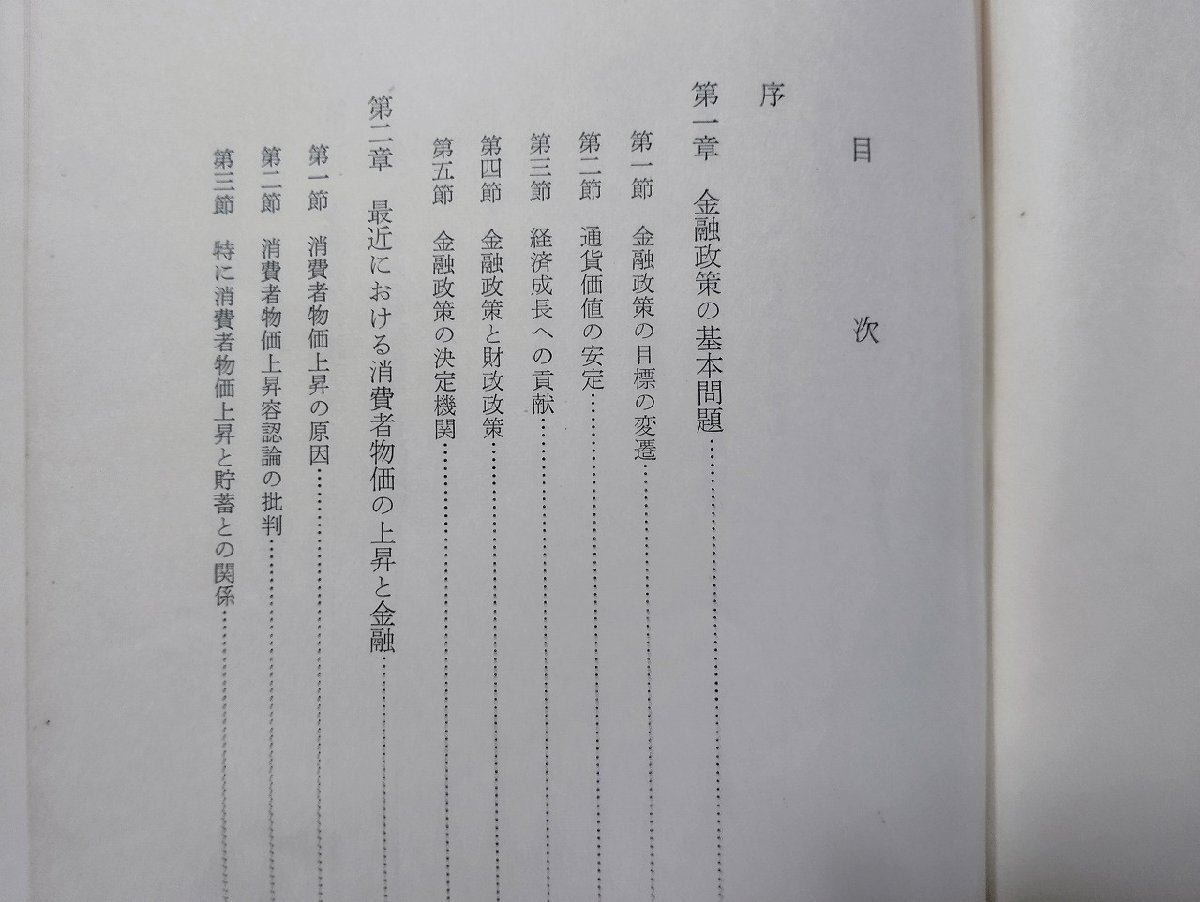 目次
序
第一章 金融政策の基本問題……………………
第一節 金融政策の目標の変遷……………………
第二節 通貨価値の安定……………………
第三節 経済成長への貢献……………………
第四節 金融政策と財政政策……………………
第五節 金融政策の決定機関……………………
第二章 最近における消費者物価の上昇と金融……………………
第一節 消費者物価上昇の原因……………………
第二節 消費者物価上昇容認論の批判……………………
第三節 特に消費者物価上昇と貯蓄との関係……………………